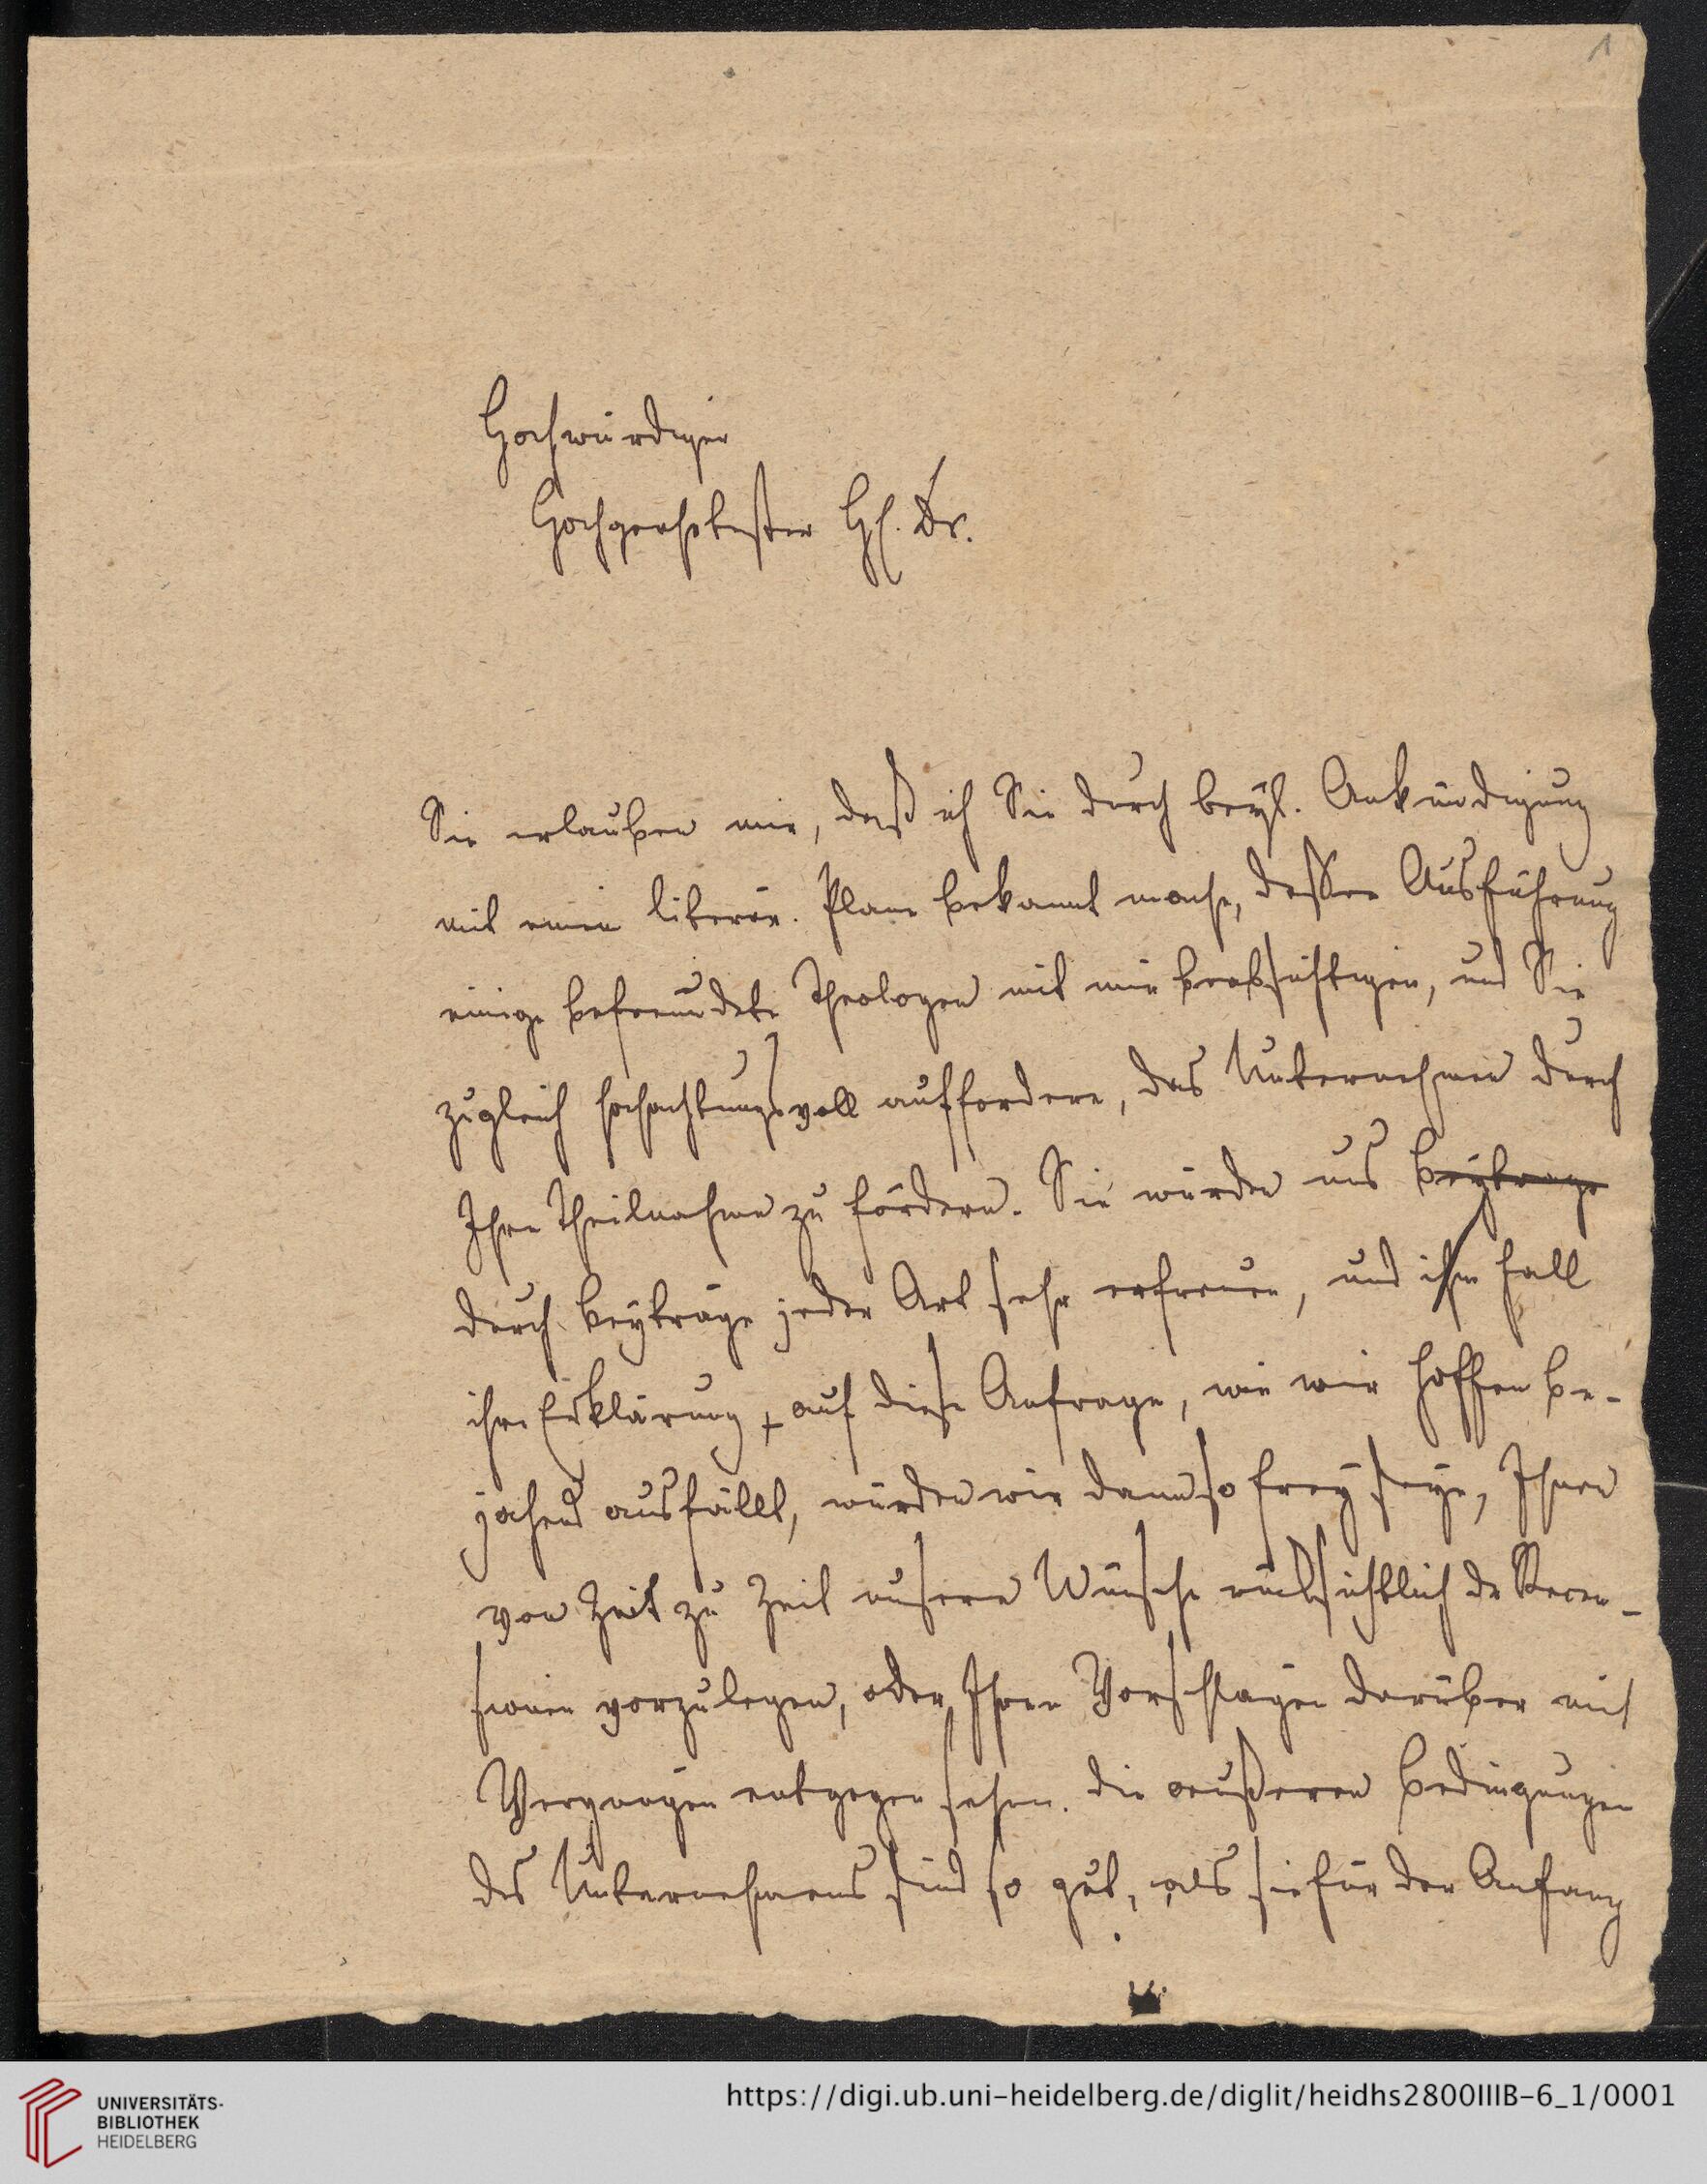 1
Hochwürdiger
Hochgeehrtester HE. Dr.
Sie erlauben mir, daß ich Sie durch beyl. Ankündigung
mit einem literär. Plane bekannt mache, dessen Ausführung
einige befreundete Theologen mit mir beabsichtigen, und Sie
zugleich hochachtungsvoll auffordere, das Unternehmen durch
Ihre Theilnahme zu fördern. Sie würden uns beytrage
durch beyträge jeder Art sehr erfreuen, und im Fall
ihre Erklärung auf diese Anfrage, wie wir hoffen be-
jahend ausfällt, würden wir dann so frey seyn, Ihnen
von Zeit zu Zeit unsere Wünsche rücksichtlich der Recen-
sionen vorzulegen, oder Ihren Vorschlägen darüber mit
Vergnügen entgegen sehen. die äußeren Bedingungen
des Unternehmens sind so gut, als sie für den Anfang
UNIVERSITÄTS-
BIBLIOTHEK
HEIDELBERG
https://digi.ub.uni-heidelberg.de/diglit/heidhs2800IIIB-6_1/0001